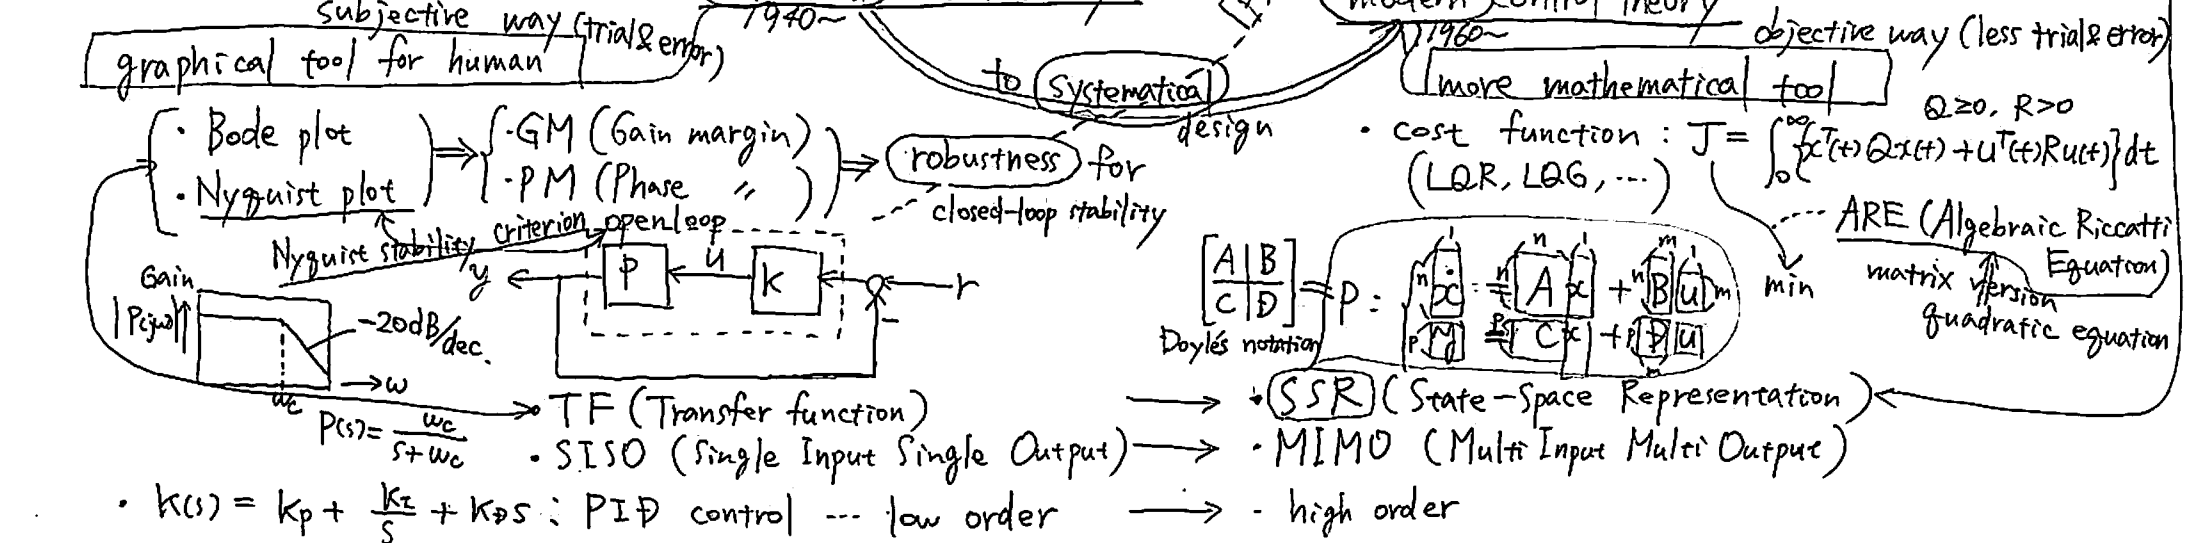 subjective way (trial & error)
1940~
modern control theory
1960~
objective way (less trial & error)
graphical tool for human
to systematical
design
more mathematical tool
Q≥0, R>0
· Bode plot
· Nyquist plot
⇒
· GM (Gain margin)
· PM (Phase 〃 )
⇒ robustness for
closed-loop stability
· cost function : J = ∫₀^∞ {xᵀ(t)Qx(t) + uᵀ(t)Ru(t)} dt
(LQR, LQG, ...)
min
ARE (Algebraic Riccatti
Equation)
matrix version
quadratic equation
Nyquist stability criterion
openloop
y P u K r
-
Gain
|P(jω)|
-20dB/dec.
ωc
→ω
P(s) = ωc/(s+ωc)
[A|B
C|D] = P :
ẋ = A x + B u
y = C x + D u
n 1 n n 1 n m 1 m
Doyle's notation
· TF (Transfer function) → · SSR (State-Space Representation)
· SISO (Single Input Single Output) → · MIMO (Multi Input Multi Output)
· K(s) = KP + KI/s + KDs : PID control ... low order → · high order